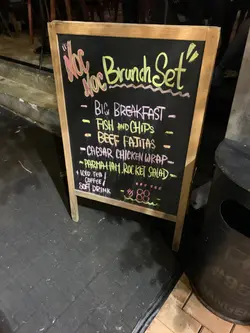 "HOC
HOC Brunch Set"
BIG BREAKFAST
- FISH AND CHIPS -
- BEEF FAJITAS -
- CAESAR CHICKEN WRAP -
- PARMA HAM ROCKET SALAD -
ICED TEA /
COFFEE /
SOFT DRINK
88